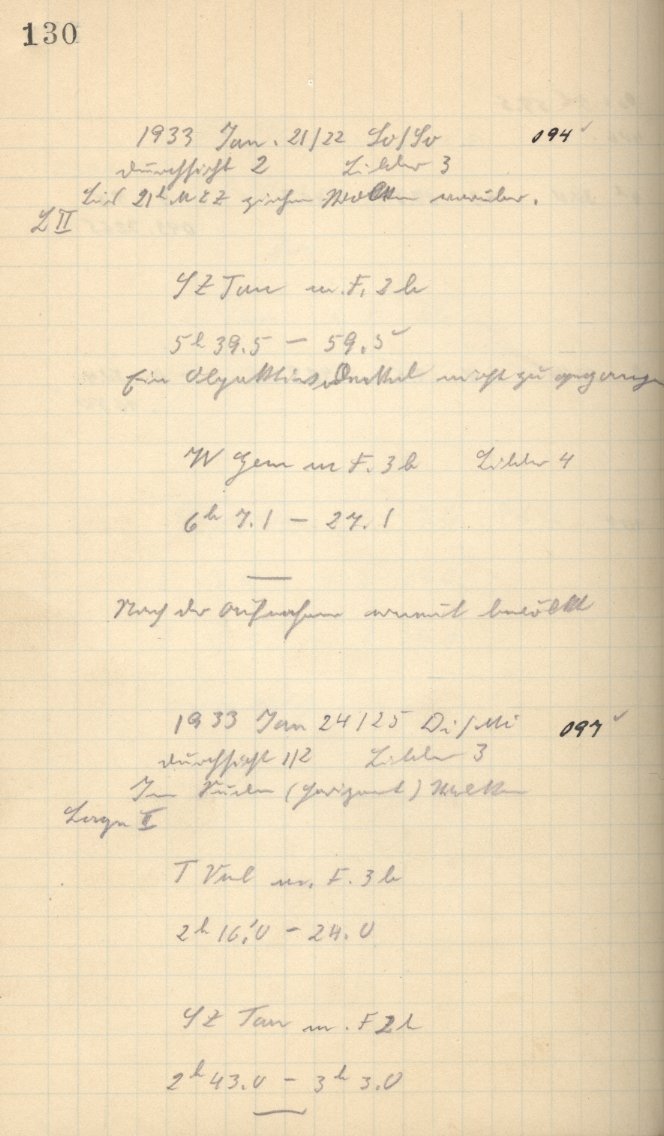 130
1933 Jan. 21/22 So/So 094
Durchsicht 2 Bilder 3
Bis 21h MEZ ziehen Wolken vorüber.
L II
SZ Tau m. F. 3 b
5h 39.5 – 59.5
Ein Objektivdeckel nicht zu gegangen
W Gem m F. 3 b Bilder 4
6h 7.1 – 27.1
Nach der Aufnahme erneut bewölkt
1933 Jan 24/25 Di/Mi 097
Durchsicht 1/2 Bilder 3
Im Süden (Horizont) Wolken
Lage II
T Vul m. F. 3 b
2h 16.0 – 24.0
SZ Tau m. F 2 b
2h 43.0 – 3h 3.0